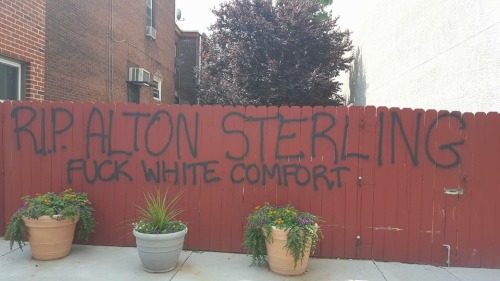 R.I.P. ALTON STERLING
FUCK WHITE COMFORT